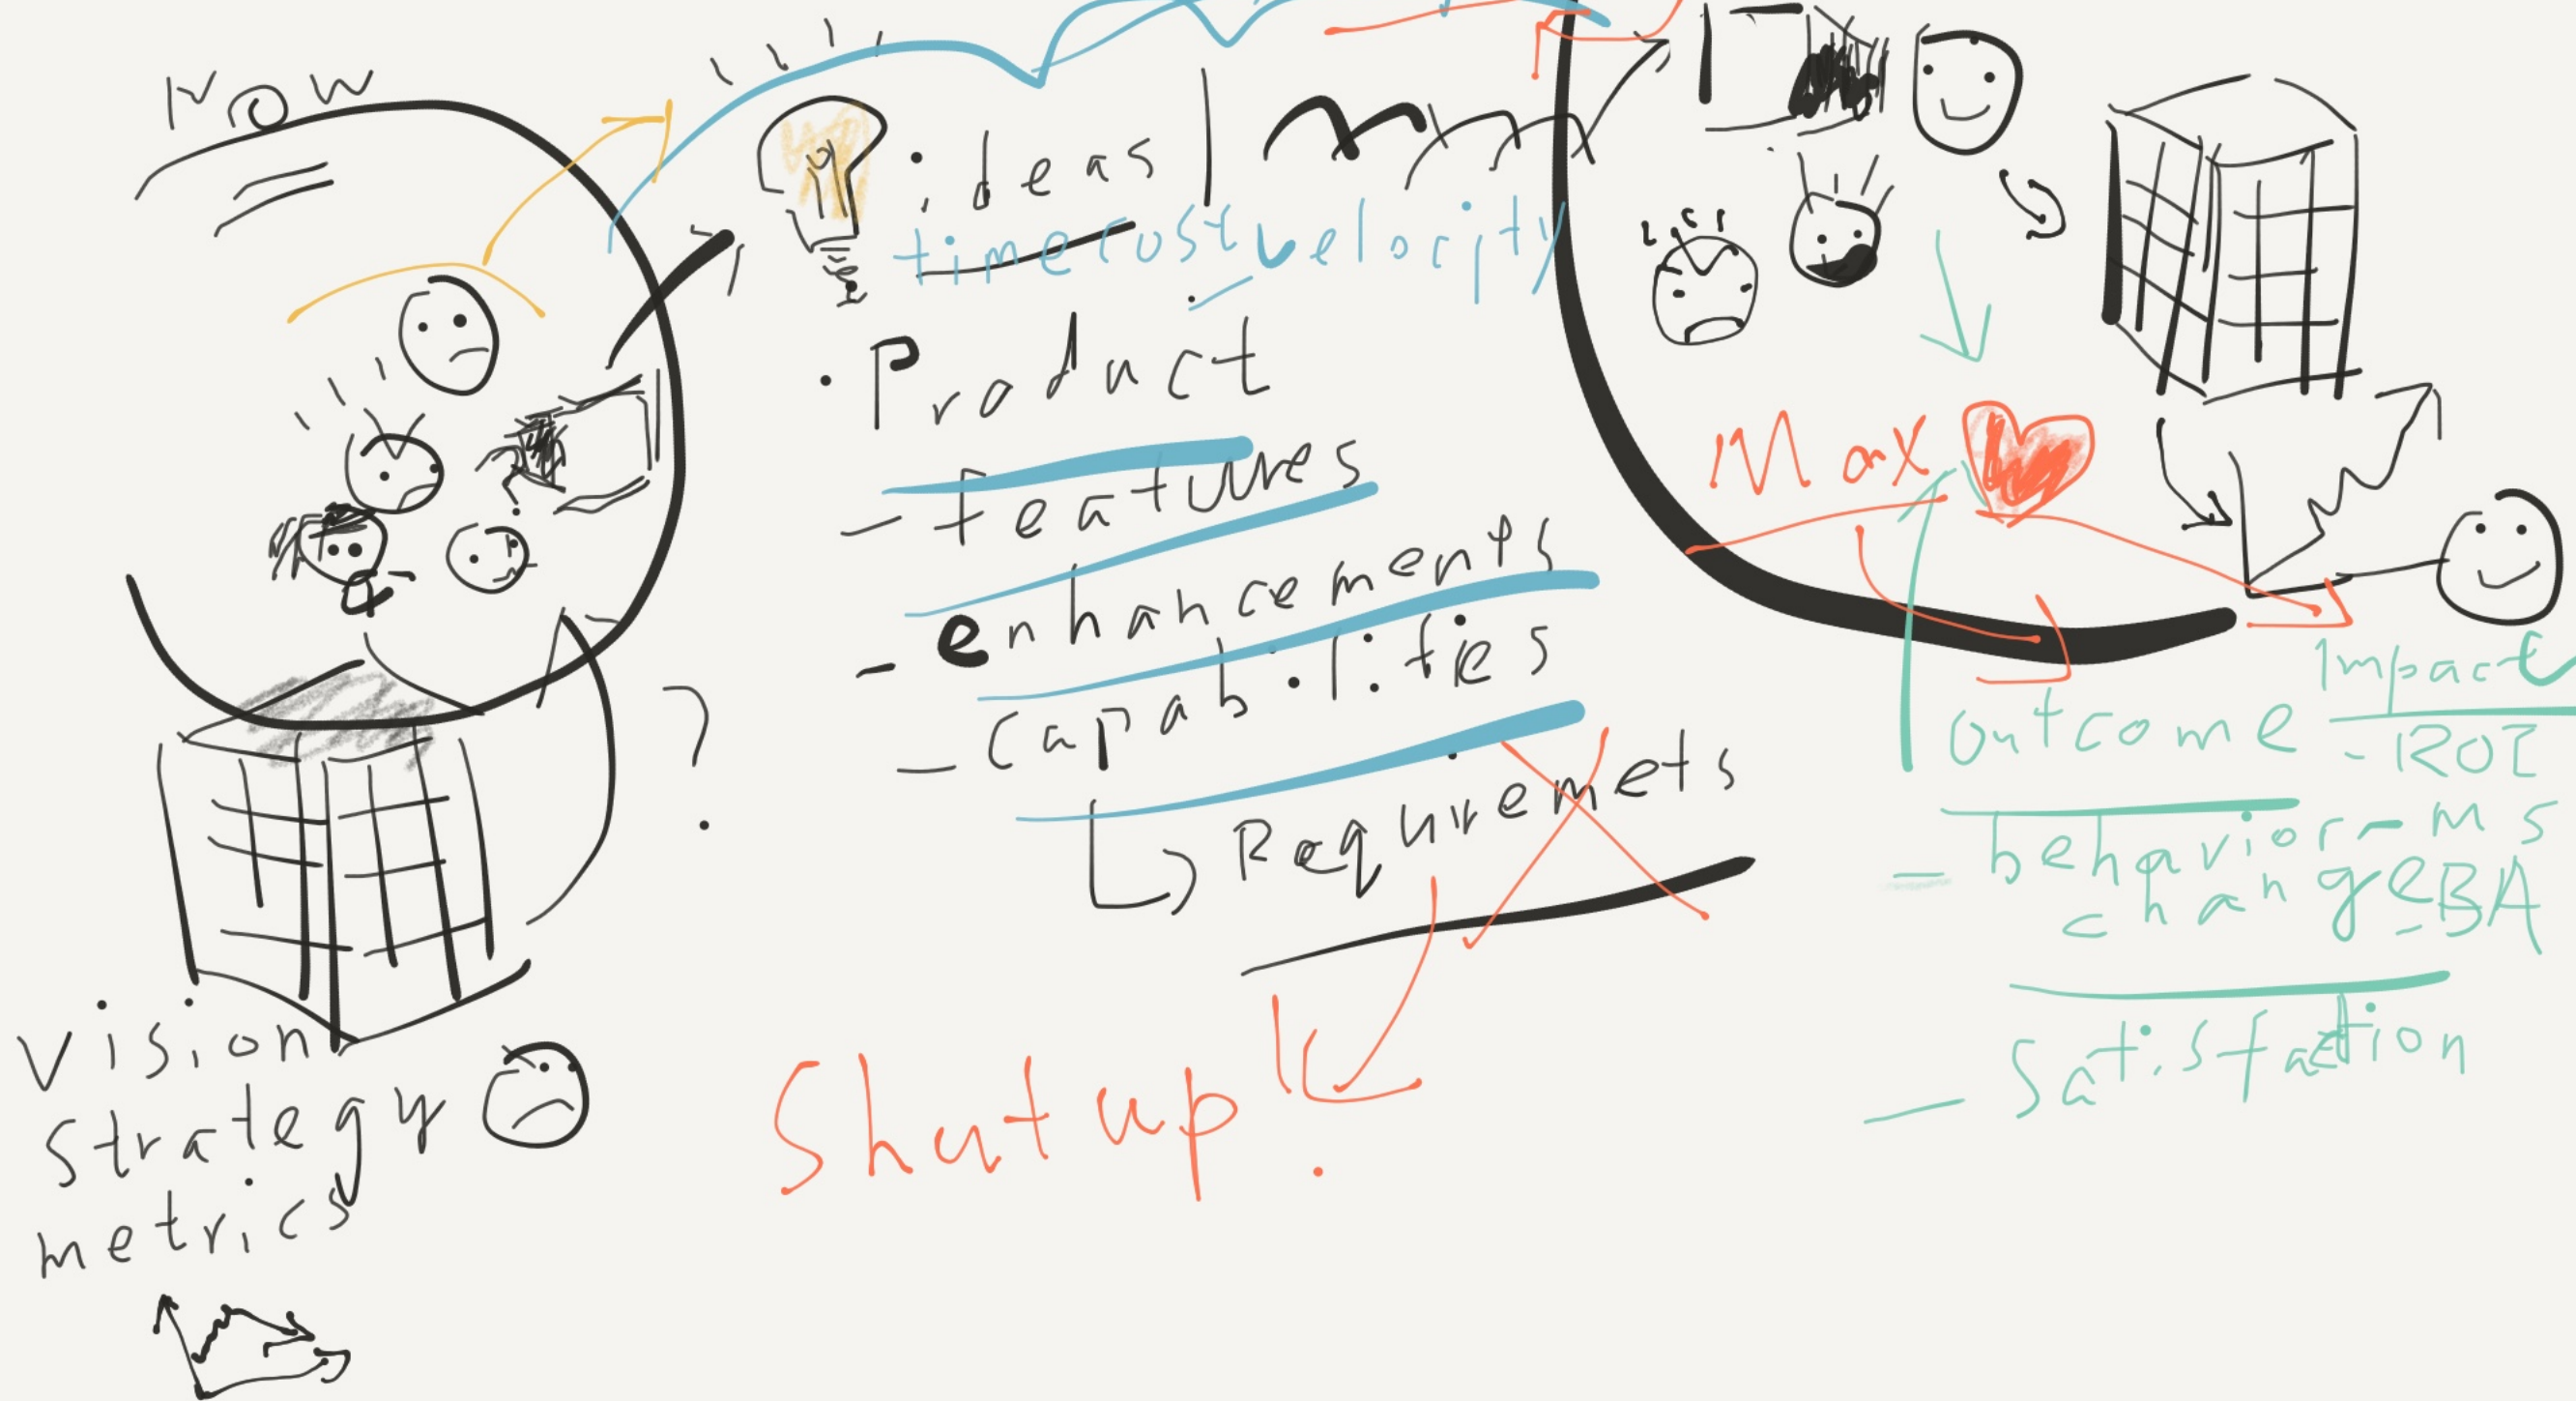 Now
ideas
time cost velocity
• Product
- features
- enhancements
- capabilities
Requiremets
?
Shut up!
vision
strategy
metrics
Max
Impact
- ROI
outcome
- behavior - MS
change - BA
- Satisfaction